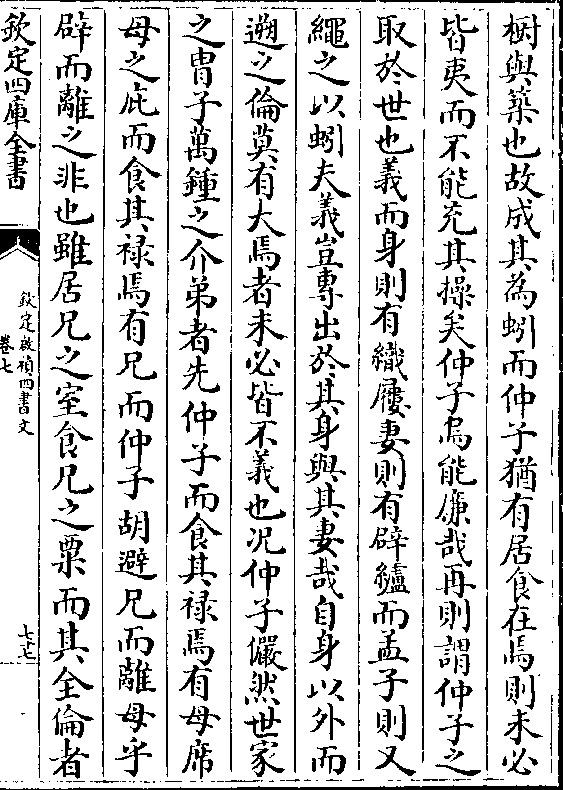 樹與築也故成其為蚓而仲子猶有居食在焉則未必
皆夷而不能充其操矣仲子烏能廉哉再則謂仲子之
取於世也義而身則有織屨妻則有辟纑而孟子則又
繩之以蚓夫義豈專出於其身與其妻哉自身以外而
遡之倫莫有大焉者未必皆不義也况仲子儼然世家
之胄子萬鍾之介弟者先仲子而食其禄焉有母席
母之庇而食其禄焉有兄而仲子胡避兄而離母乎
辟而離之非也雖居兄之室食兄之粟而其全倫者
欽定四庫全書
欽定啟禎四書文
卷七
七十七